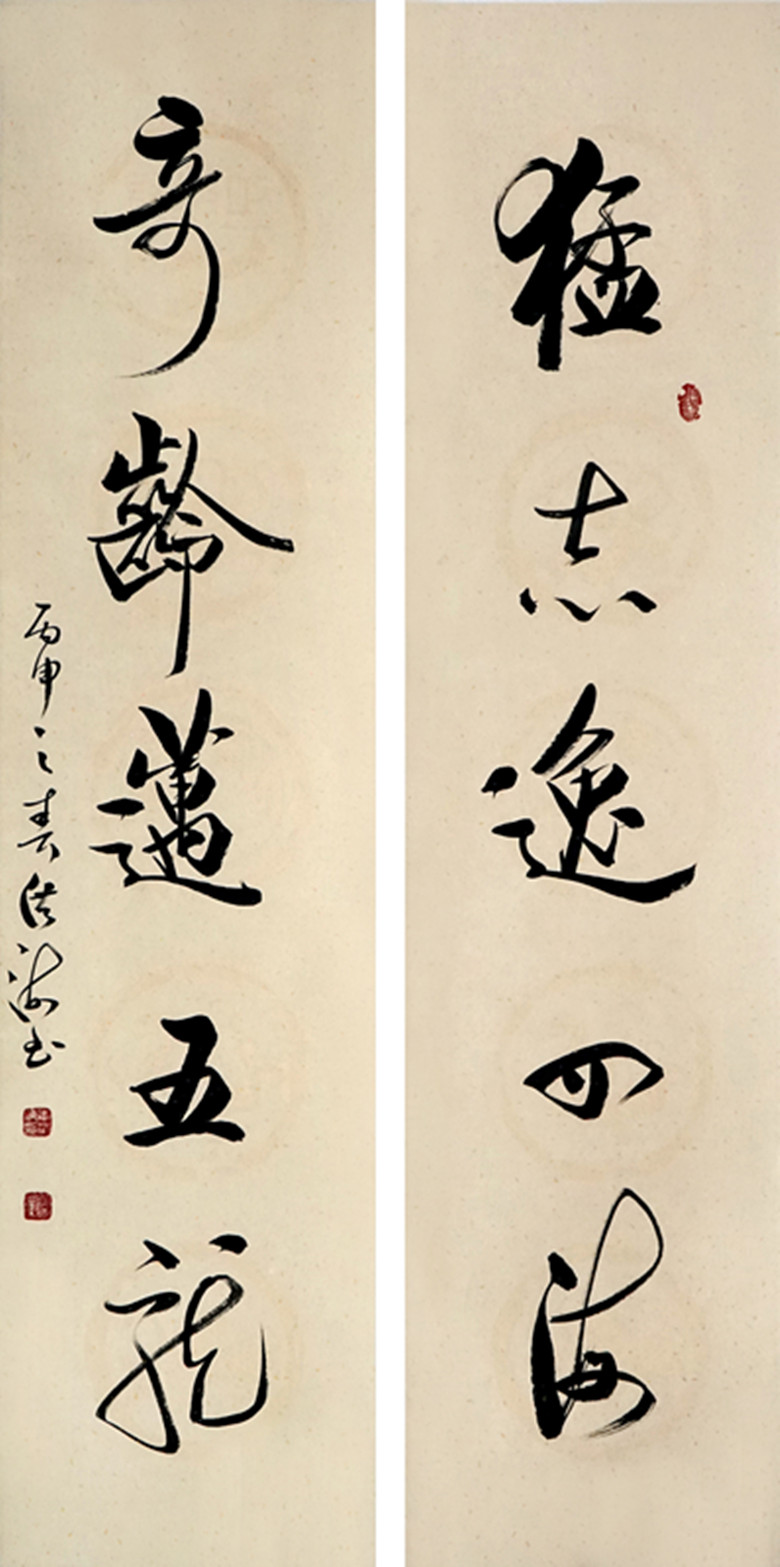 猛志逸四海
奇齡邁五龍
丙申之春洪海書